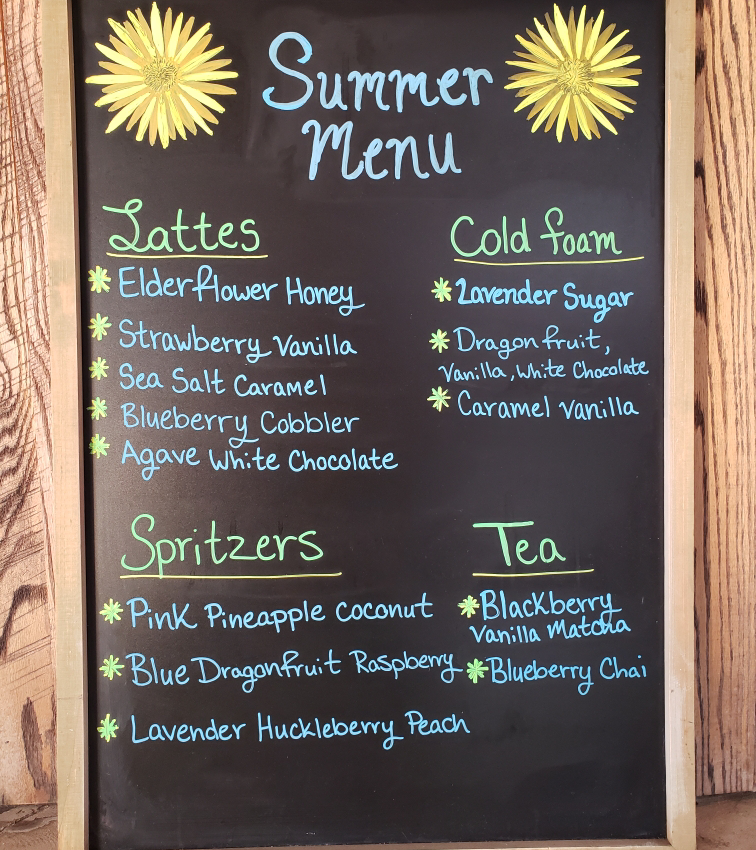 Summer
Menu
Lattes
Elderflower Honey
Strawberry Vanilla
Sea Salt Caramel
Blueberry Cobbler
Agave White Chocolate
Cold foam
Lavender Sugar
Dragonfruit,
Vanilla, White Chocolate
Caramel Vanilla
Spritzers
Pink Pineapple Coconut
Blue Dragonfruit Raspberry
Lavender Huckleberry Peach
Tea
Blackberry
Vanilla Matcha
Blueberry Chai